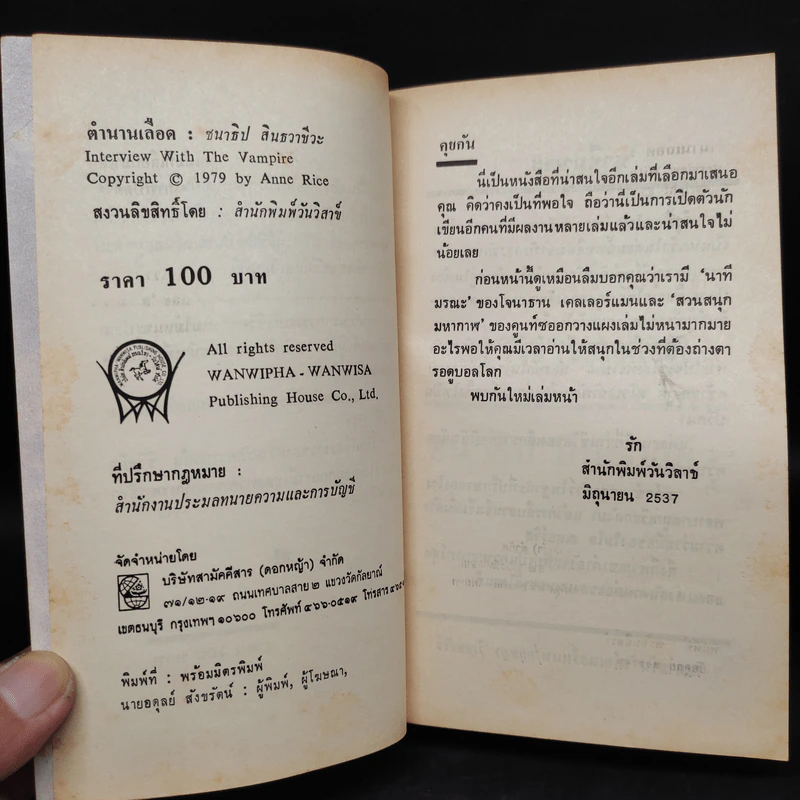 ตำนานเลือด : ชนาธิป สินธวาชีวะ
Interview With The Vampire
Copyright © 1979 by Anne Rice
สงวนลิขสิทธิ์โดย : สำนักพิมพ์วันวิสาข์
ราคา 100 บาท
All rights reserved
WANWIPHA - WANWISA
Publishing House Co., Ltd.
ที่ปรึกษากฎหมาย :
สำนักงานประมลทนายความและการบัญชี
จัดจำหน่ายโดย
บริษัทสามัคคีสาร (ดอกหญ้า) จำกัด
๗๑/๑๒-๑๙ ถนนเทศบาลสาย ๒ แขวงวัดกัลยาณ์
เขตธนบุรี กรุงเทพฯ ๑๐๖๐๐ โทรศัพท์ ๔๖๖-๐๕๑๙ โทรสาร
พิมพ์ที่ : พร้อมมิตรพิมพ์
นายอดุลย์ สังขรัตน์ : ผู้พิมพ์, ผู้โฆษณา,
คุยกัน
นี่เป็นหนังสือที่น่าสนใจอีกเล่มที่เลือกมาเสนอ
คุณ คิดว่าคงเป็นที่พอใจ ถือว่านี่เป็นการเปิดตัวนัก
เขียนอีกคนที่มีผลงานหลายเล่มแล้วและน่าสนใจไม่
น้อยเลย
ก่อนหน้านี้ดูเหมือนลืมบอกคุณว่าเรามี ‘นาที
มรณะ’ ของโจนาธาน เคลเลอร์แมนและ ‘สวนสนุก
มหากาฬ’ ของคูนท์ซออกวางแผงเล่มไม่หนามากมาย
อะไรพอให้คุณมีเวลาอ่านให้สนุกในช่วงที่ต้องถ่างตา
รอดูบอลโลก
พบกันใหม่เล่มหน้า
รัก
สำนักพิมพ์วันวิสาข์
มิถุนายน 2537